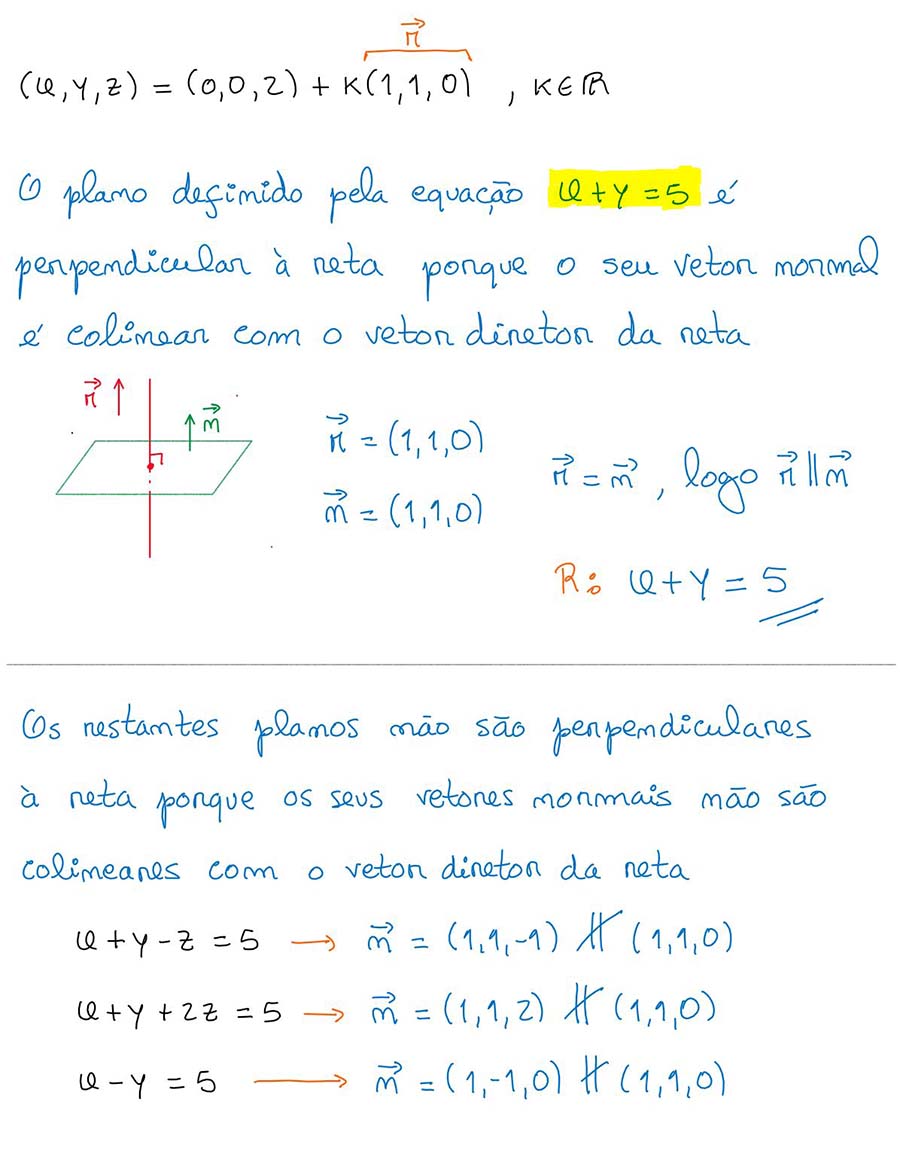 r⃗
(x, y, z) = (0,0,2) + k(1,1,0) , k∈ℝ
O plano definido pela equação x+y=5 é
perpendicular à reta porque o seu vetor normal
é colinear com o vetor diretor da reta
r⃗ n⃗
r⃗ = (1,1,0)
n⃗ = (1,1,0)
r⃗ = n⃗ , logo r⃗ ∥ n⃗
R: x+y = 5
Os restantes planos não são perpendiculares
à reta porque os seus vetores normais não são
colineares com o vetor diretor da reta
x+y-z = 5 → n⃗ = (1,1,-1) ∦ (1,1,0)
x+y+2z = 5 → n⃗ = (1,1,2) ∦ (1,1,0)
x-y = 5 → n⃗ = (1,-1,0) ∦ (1,1,0)